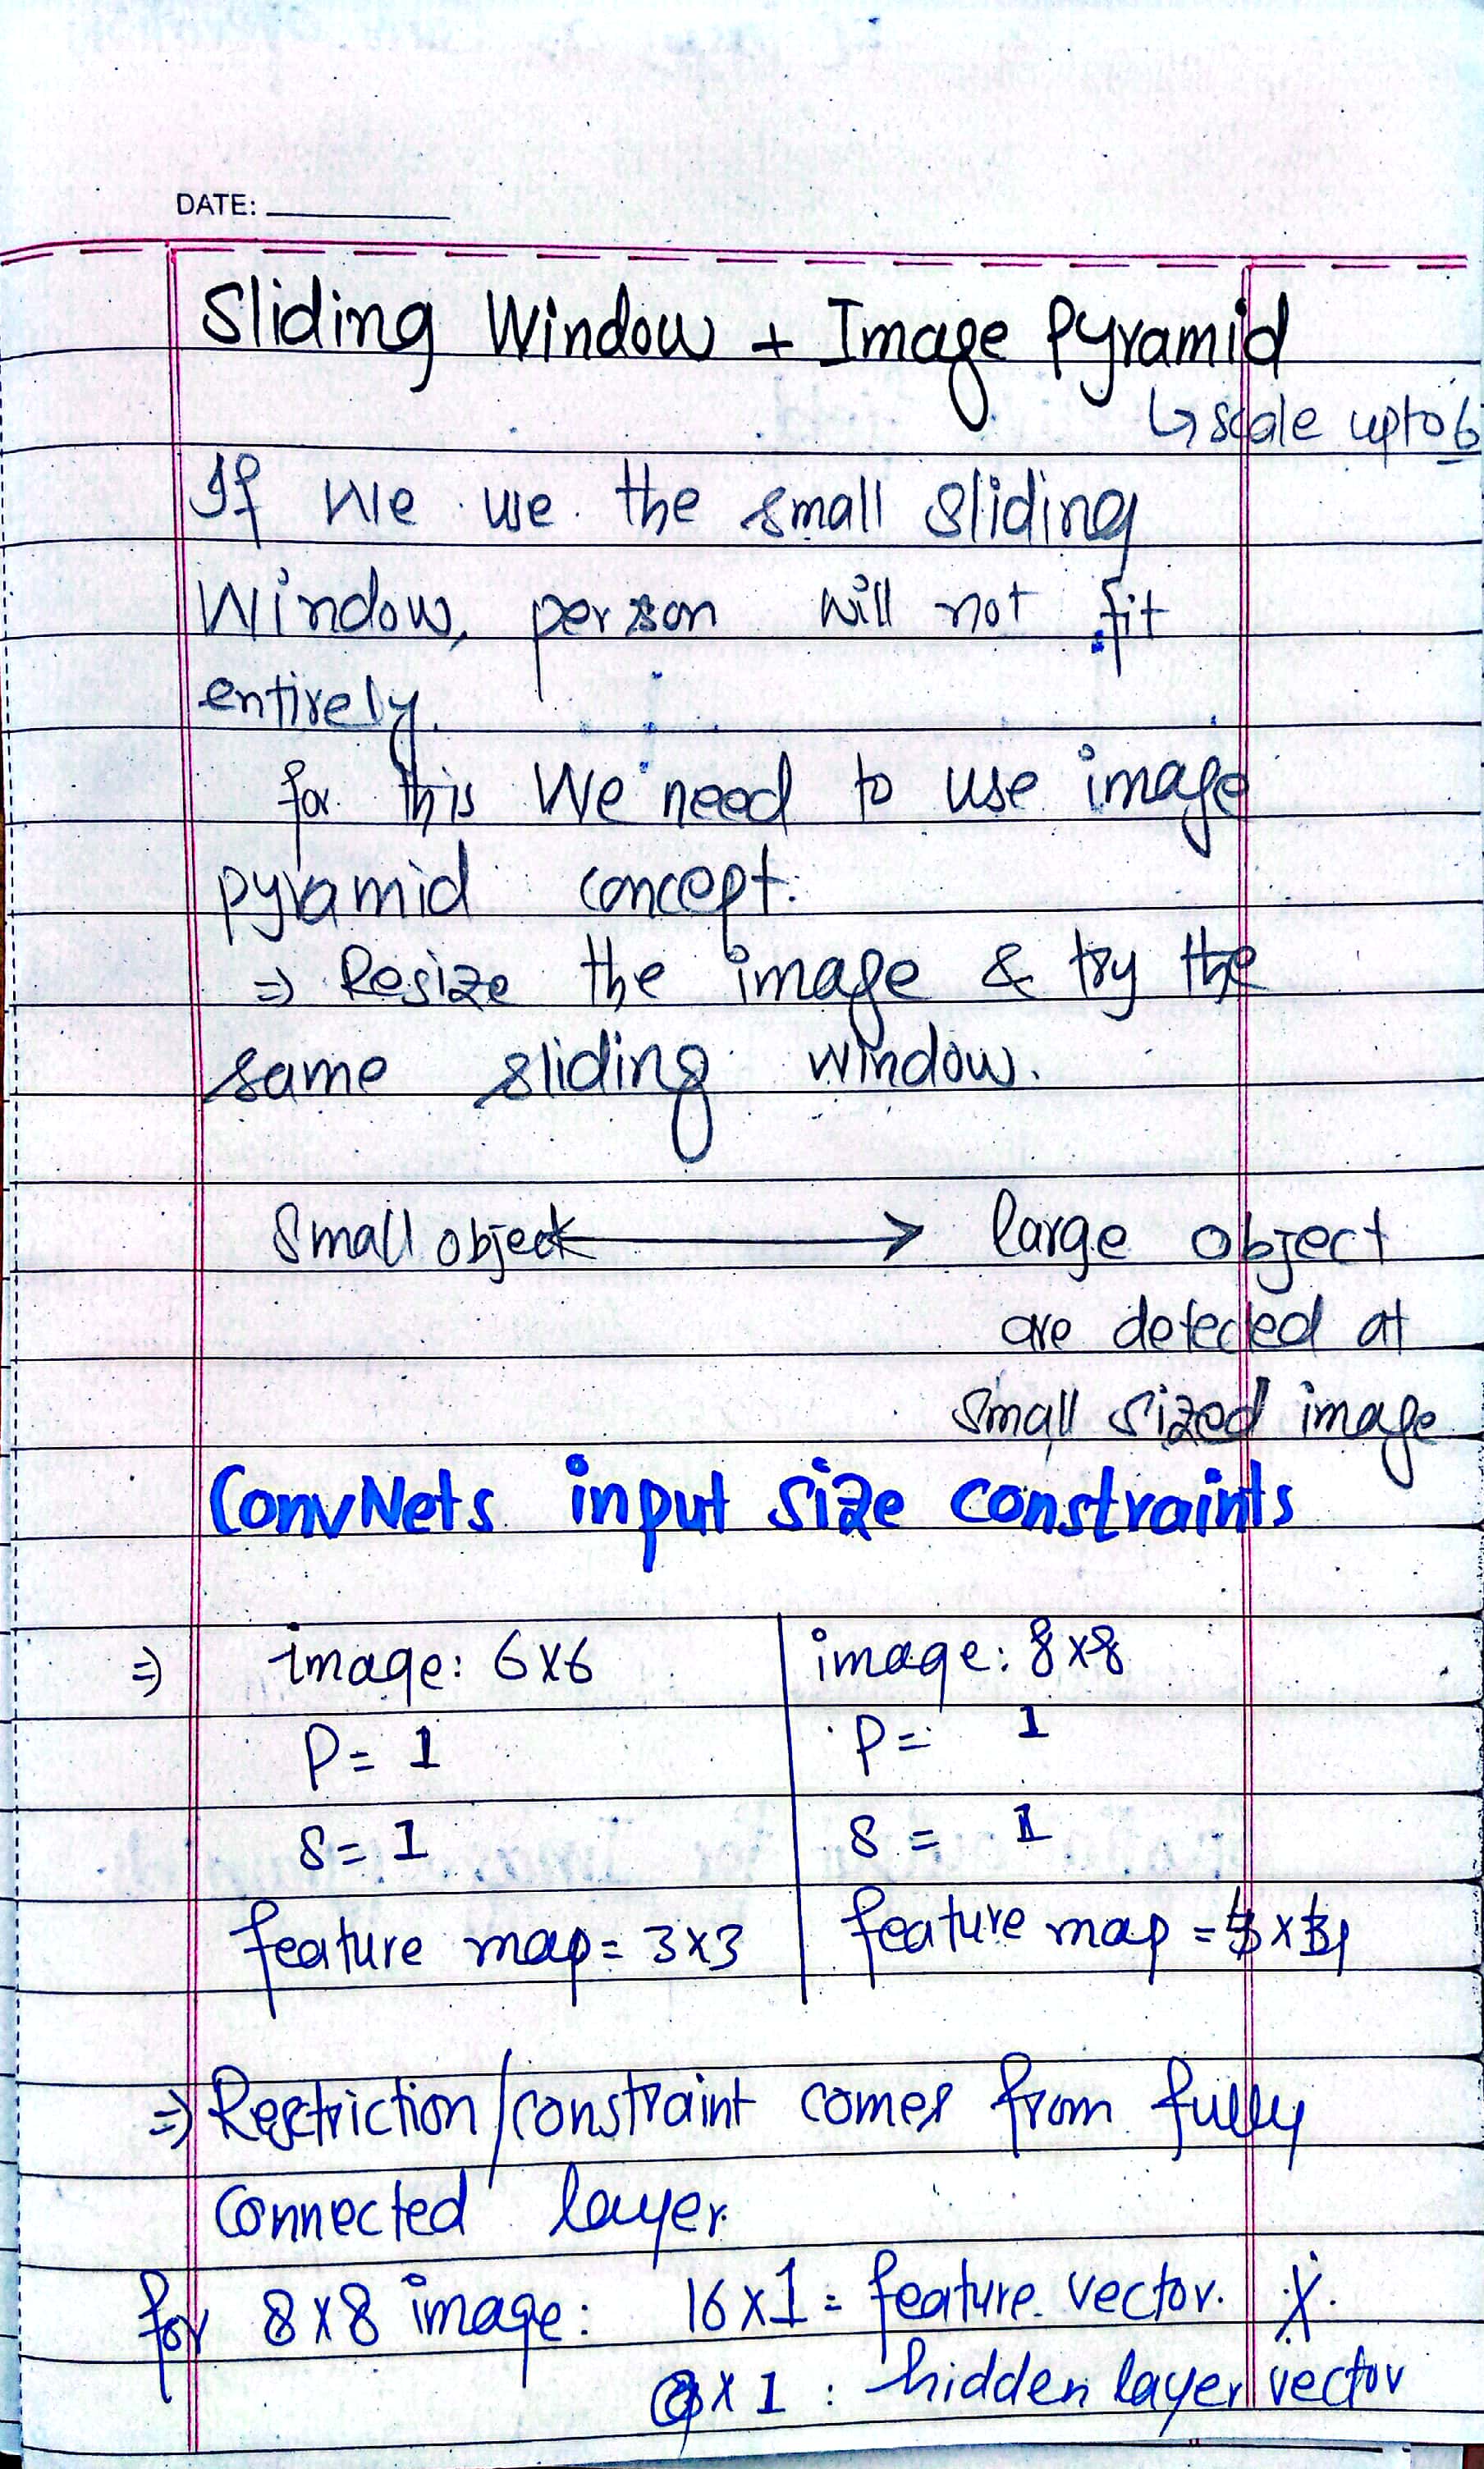 DATE:
Sliding Window + Image Pyramid
↳ scale upto 6
If we use the small sliding
Window, person will not fit
entirely.
for this we need to use image
pyramid concept.
⇒ Resize the image & try the
same sliding window.
Small object ⟷ large object
are detected at
small sized image
ConvNets input size constraints
⇒ image: 6x6 | image: 8x8
P= 1 | P= 1
S= 1 | S = 1
feature map= 3x3 | feature map = 4x4
⇒ Restriction/constraint comes from fully
connected layer.
for 8x8 image: 16x1 = feature vector. X.
9x1 : hidden layer vector